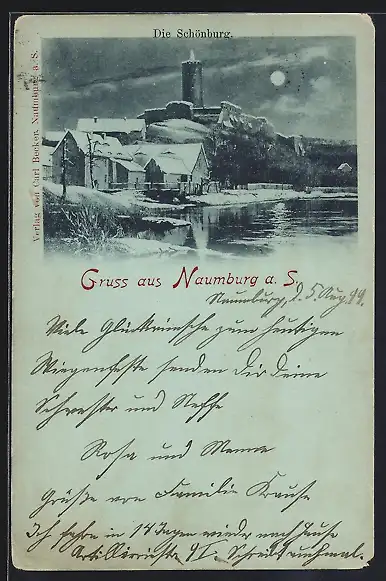 Die Schönburg.
Verlag von Carl Becker, Naumburg a. S.
Gruss aus Naumburg a. S.
Naumburg, d. 5 Aug. 99.
Viele Glückwünsche zum heutigen
Wiegenfeste senden Dir Deine
Schwester und Neffe
Rosa und
Grüße von Familie Krause
Ich fahre in 14 Tagen wieder nach Hause
Schreibt nochmal.